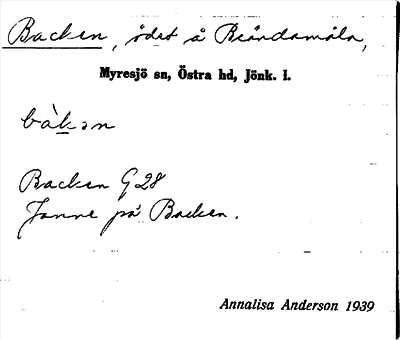 Backen, ödet å Brändamåla,
Myresjö sn, Östra hd, Jönk. l.
bàkən
Backen G 28
Janne på Backen.
Annalisa Anderson 1939